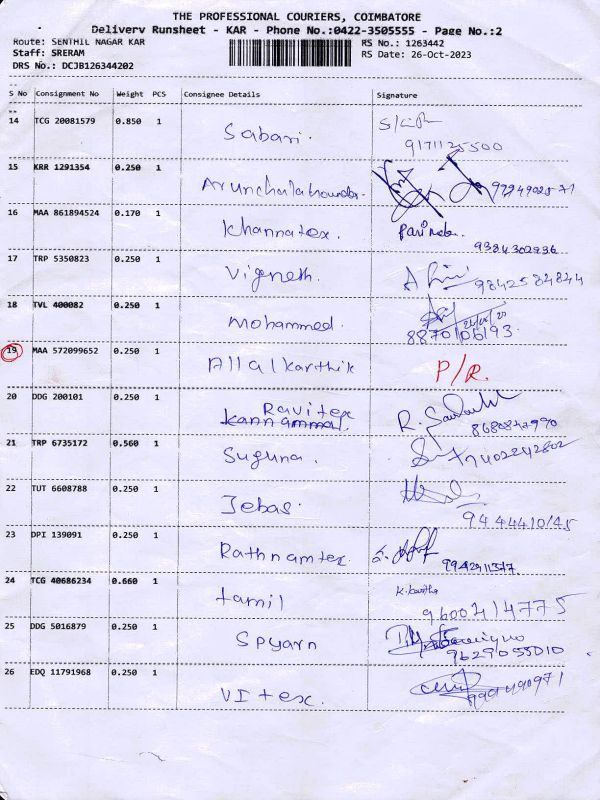 THE PROFESSIONAL COURIERS, COIMBATORE
Delivery Runsheet - KAR - Phone No.:0422-3505555 - Page No.:2
Route: SENTHIL NAGAR KAR
RS No.: 1263442
Staff: SRERAM
RS Date: 26-Oct-2023
DRS No.: DCJB126344202
S No Consignment No Weight PCS Consignee Details Signature
14 TCG 20081579 0.850 1 Sabari.
9171125500
15 KRR 1291354 0.250 1
16 MAA 861894524 0.170 1 Khannatex.
9384302936
17 TRP 5350823 0.250 1 Vignesh.
9842584844
18 TVL 400082 0.250 1 Mohammed.
8870106193
19 MAA 572099652 0.250 1 Allalkarthik P/R.
20 DDG 200101 0.250 1 Ravitex
kannammal
21 TRP 6735172 0.560 1 Suguna.
7402242802
22 TUT 6608788 0.250 1 Jebas.
9444410145
23 DPI 139091 0.250 1 Rathnamtex
9942911377
24 TCG 40686234 0.660 1 tamil K. Kavitha
9600414775
25 DDG 5016879 0.250 1 Spyarn
9629055010
26 EDQ 11791968 0.250 1 VItex.